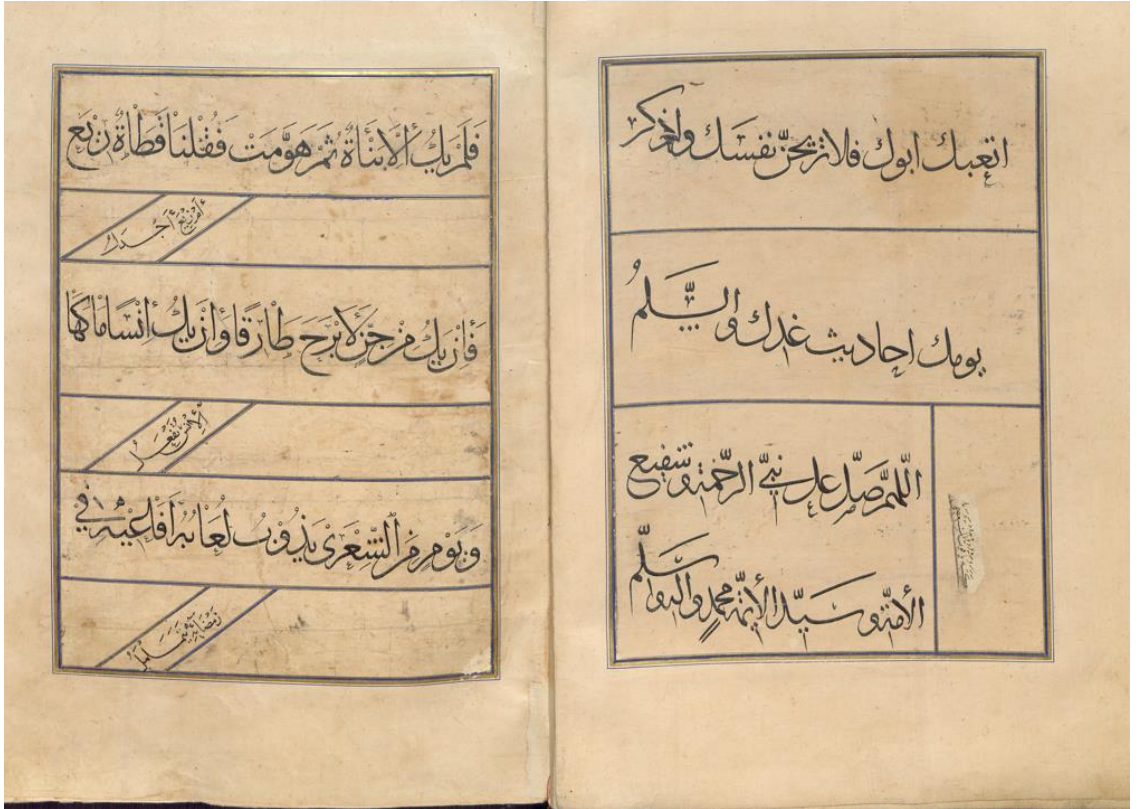 اتعبك ابوك فلا تريحنّ نفسك واذكر
يومك احاديث غدك والسَّلمُ
اللّهمّ صَلّ على نبيّ الرحْمة وشفيع
الأمّة وسيّد الأئمّة محمدٍ واله وسَلّم
فَلَمْ يَكُ إِلَّا نَبْأَةٌ ثُمَّ هَوَّمَتْ فَقُلْنَا قَطَاةٌ رِيْعَ
أَمْ رِيْعَ أَجْدَلُ
فَإِنْ يَكُ مِنْ جِنٍّ لَأَبْرَحَ طَارِقًا وَإِنْ يَكُ إِنْسًا مَاكَهَا
الْإِنْسُ تَفْعَلُ
وَيَوْمٍ مِنَ الشِّعْرَىٰ يَذُوْبُ لُعَابُهُ أَفَاعِيْهِ فِي
رَمْضَائِهِ تَتَمَلْمَلُ